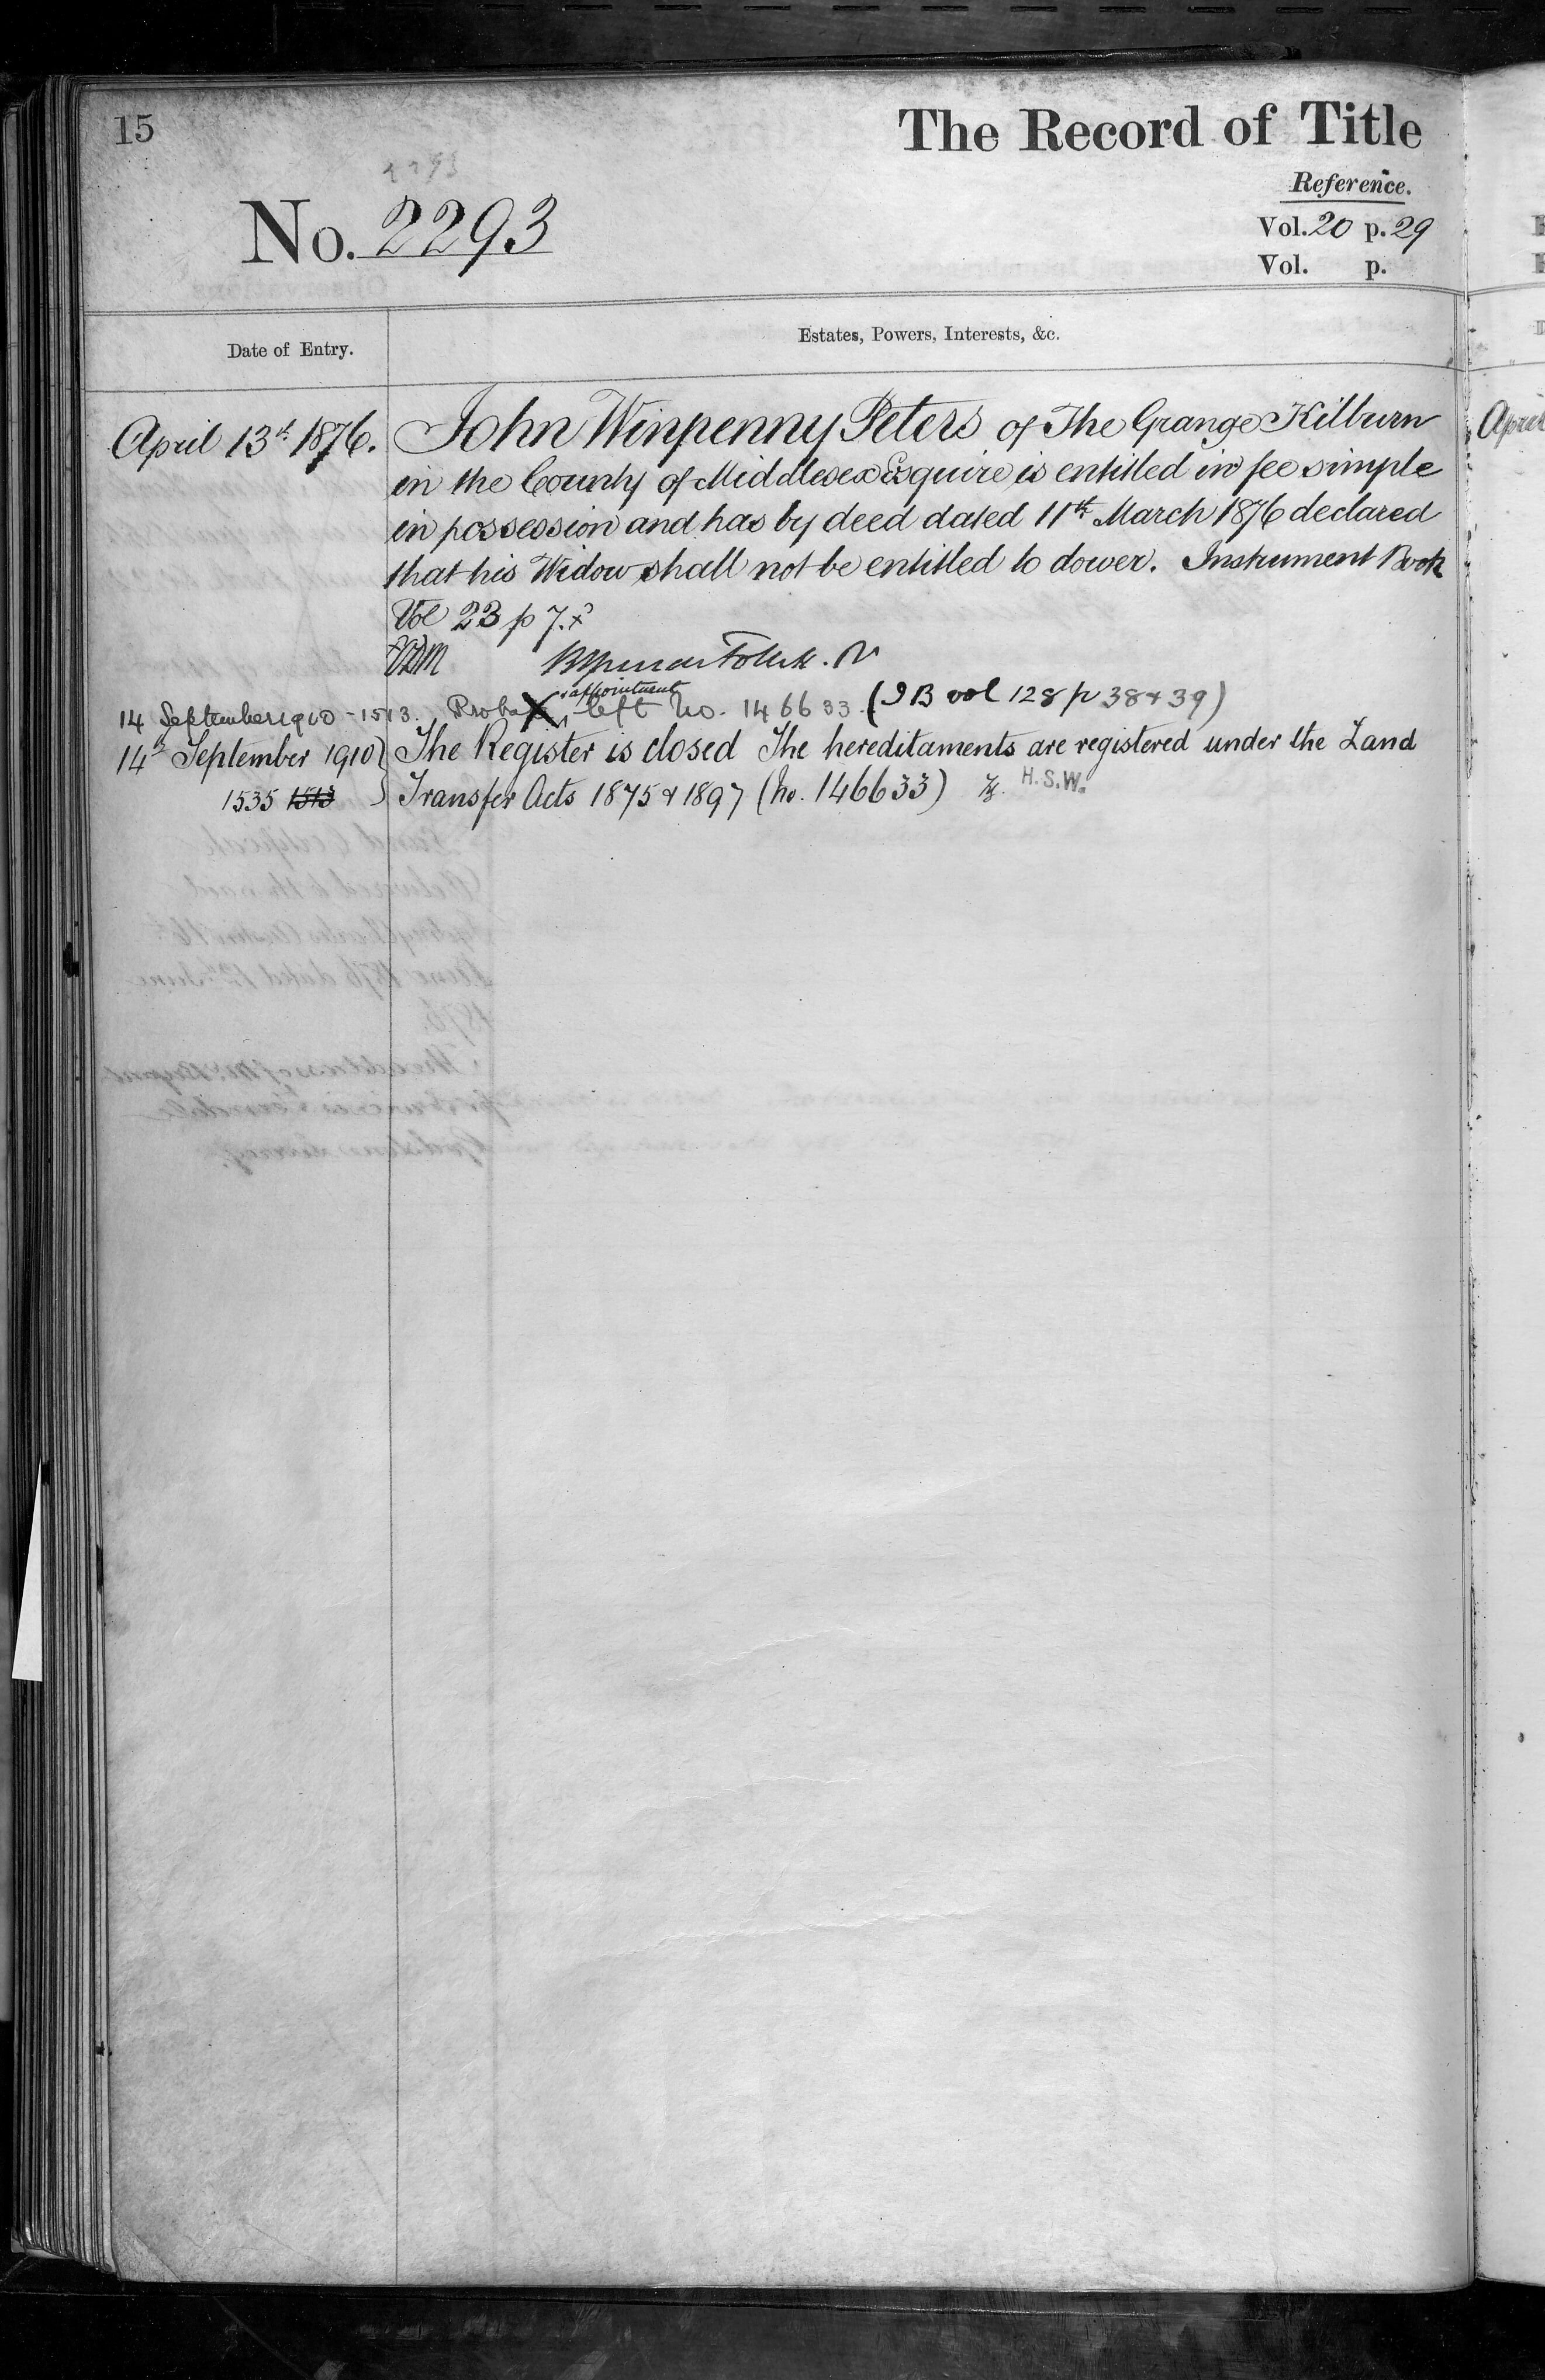 15
The Record of Title
Reference.
2293
No. 2293
Vol. 20 p. 29
Vol. p.
Date of Entry.
Estates, Powers, Interests, &c.
April 13th 1876. John Winpenny Peters of The Grange Kilburn
in the County of Middlesex Esquire is entitled in fee simple
in possession and has by deed dated 11th March 1876 declared
that his Widow shall not be entitled to dower. Instrument Book
Vol 23 p 7.
appointment
14 September 1910 - 1513. left No. 146633. (IB vol 128 p 38 & 39)
14th September 1910 The Register is closed The hereditaments are registered under the Land
1535 1513 Transfer Acts 1875 & 1897 (No. 146633) H.S.W.
April